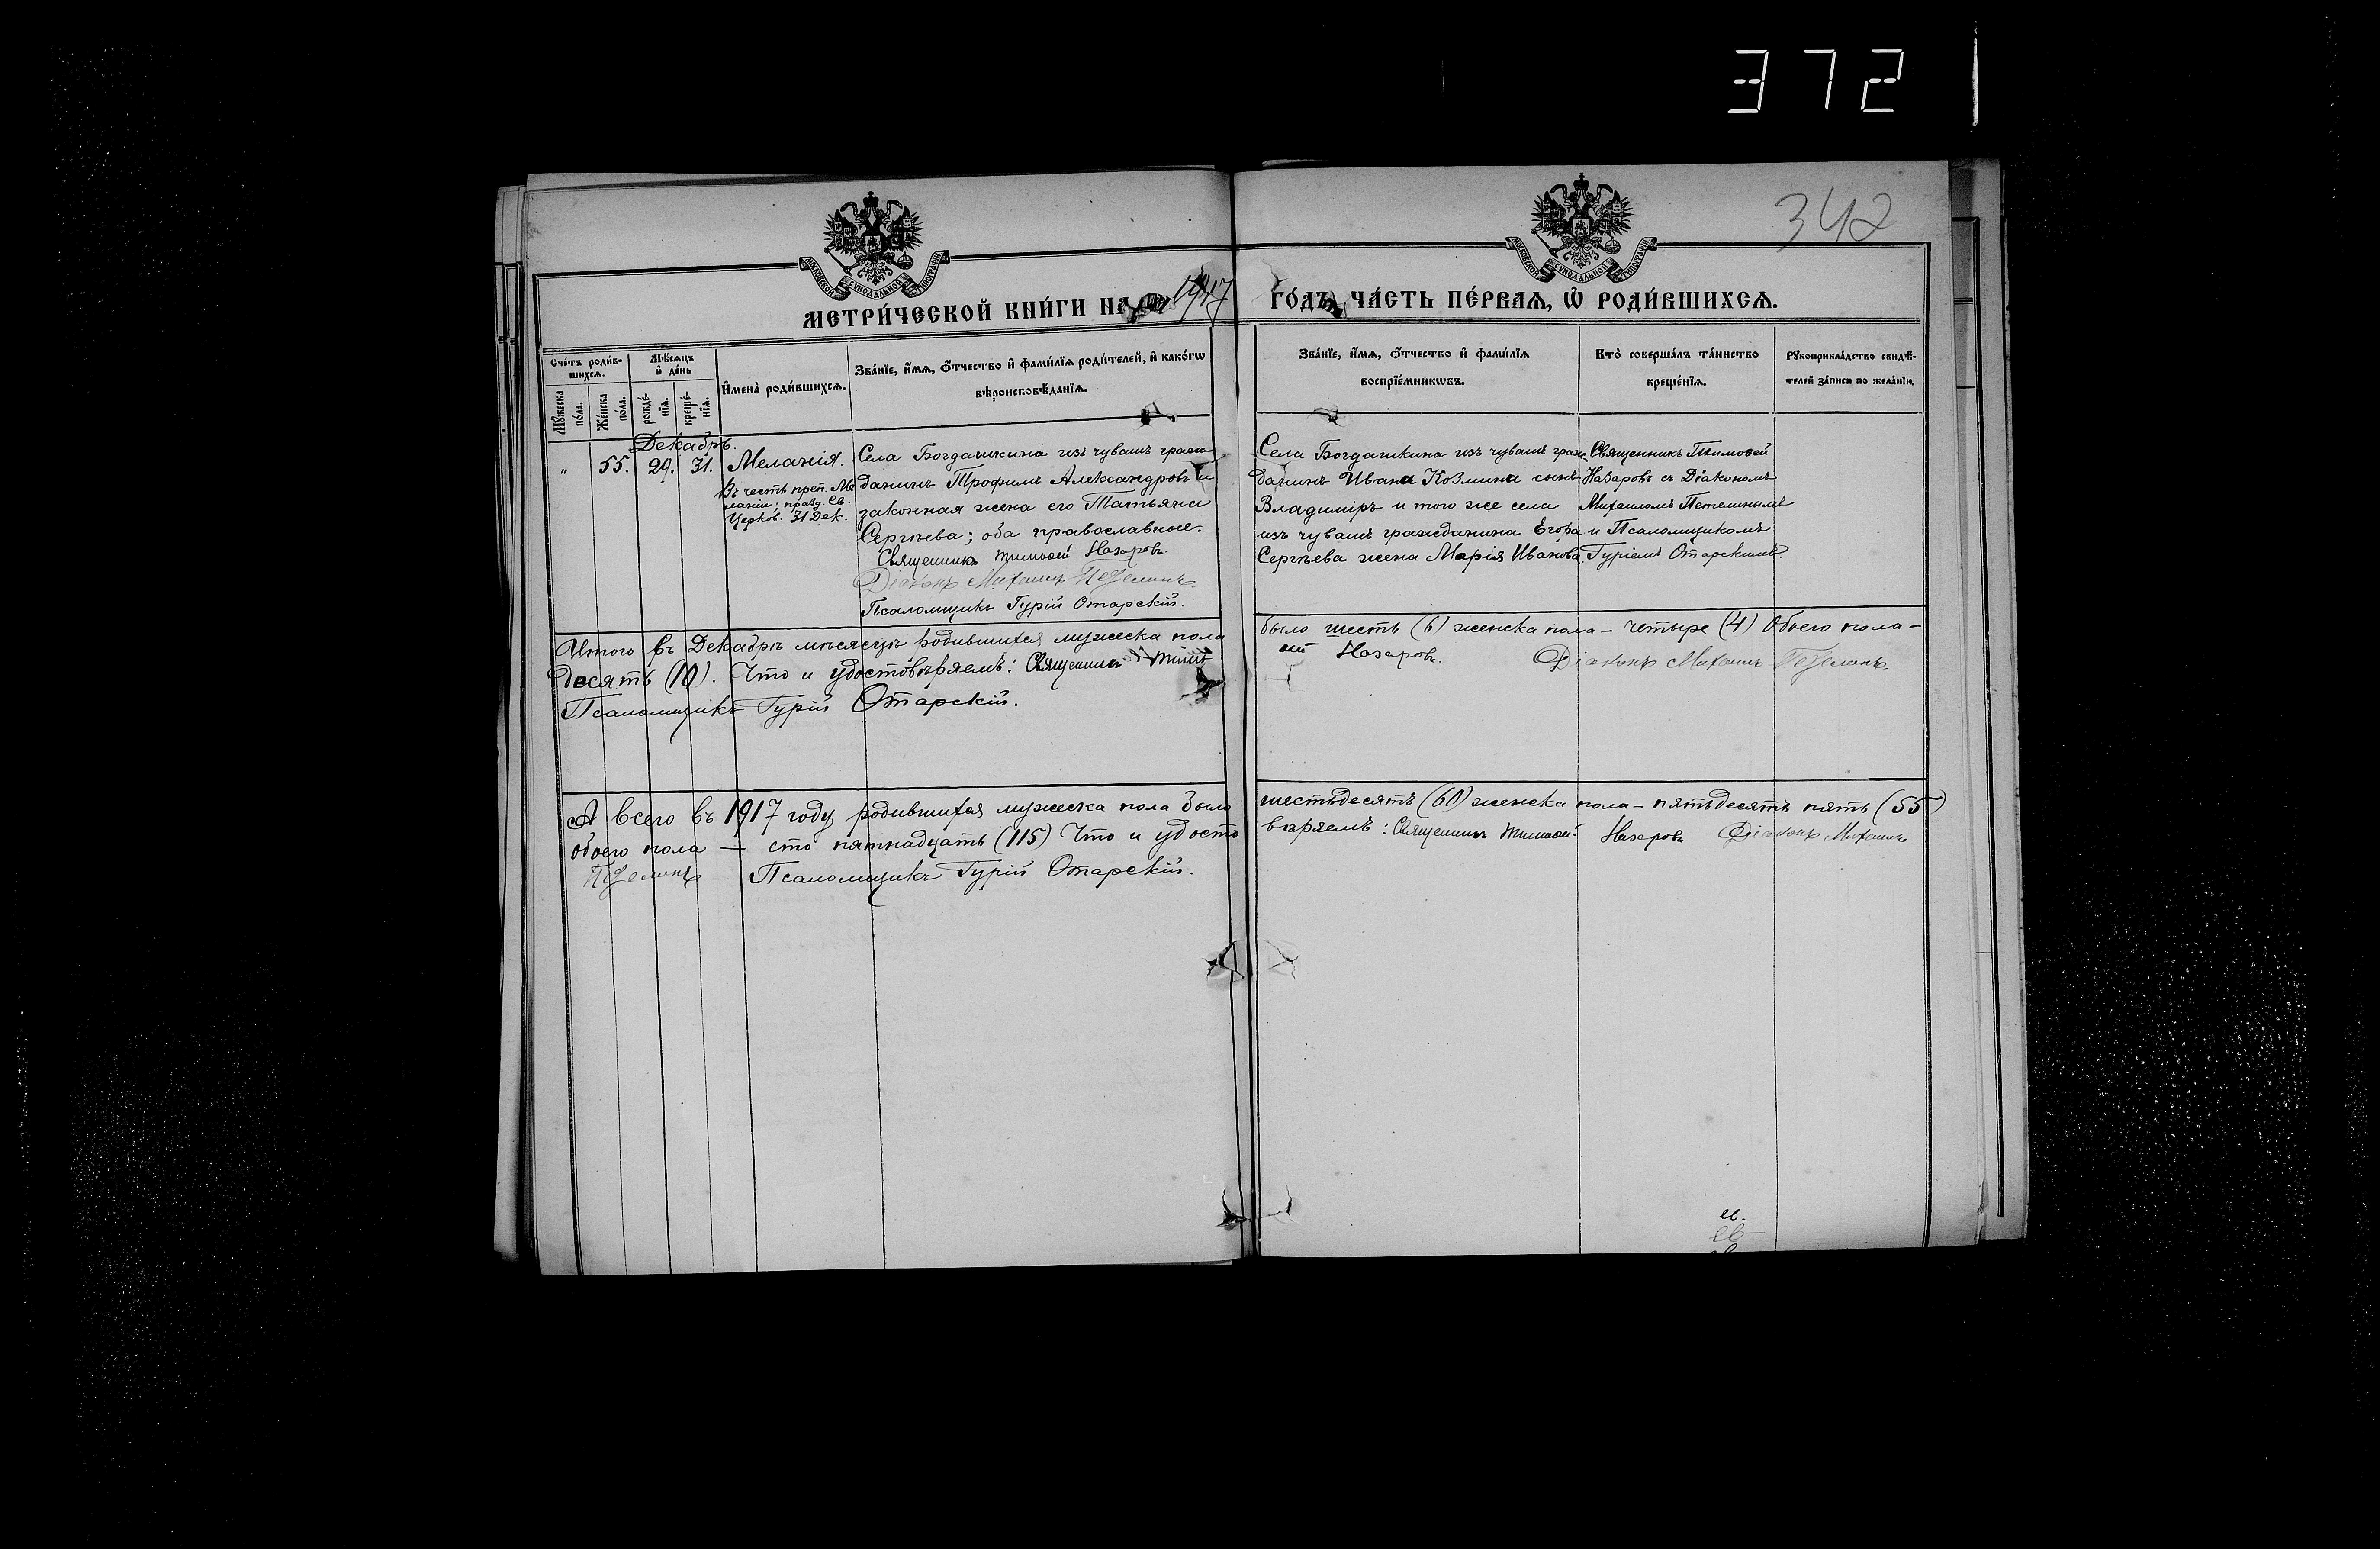 372
342
МОСКОВСКОЙ СѴНОДАЛЬНОЙ ТИПОГРАФІИ
МОСКОВСКОЙ СѴНОДАЛЬНОЙ ТИПОГРАФІИ
МЕТРИ́ЧЕСКОЙ КНИ́ГИ НА 1917 ГО́ДЪ ЧА́СТЬ ПЕ́РВАѦ, Ѡ РОДИ́ВШИХСѦ.
Сче́тъ роди́в-
шихсѧ.
Мꙋ́жеска по́ла.
Же́нска по́ла.
Мѣ́сѧцъ и де́нь
рожде́-нїѧ.
креще́-нїѧ.
Имена̀ роди́вшихсѧ.
Зва́нїе, и́мѧ, о́тчество и фами́лїѧ роди́телей, и како́гѡ
вѣроисповѣ́данїѧ.
Зва́нїе, и́мѧ, о́тчество и фами́лїѧ
воспрїе́мникѡвъ.
Кто̀ соверша́лъ та́инство
креще́нїѧ.
Рꙋкоприкла́дство свидѣ́-
телей за́писи по жела́нїю.
Декабрь.
" 55. 29. 31. Меланія.
Въ честь преп. Ме
ланіи; празд. Св.
Церков. 31 Дек.
Села Богдашкина изъ чувашъ граж
данинъ Трофимъ Александровъ и
законная жена его Татьяна
Сергѣева; оба православные.
Священникъ Тимоѳей Назаровъ.
Діаконъ Михаилъ Петелинъ.
Псаломщикъ Гурій Отарскій.
Села Богдашкина изъ чувашъ граж-
данинъ Ивана Козмина сынъ
Владиміръ и того же села
изъ чувашъ гражданина Егора
Сергѣева жена Марія Иванова.
Священникъ Тимоѳей
Назаровъ съ Діакономъ
Михаиломъ Петелинымъ
и Псаломщикомъ
Гуріемъ Отарскимъ.
Итого въ Декабрѣ мѣсяцѣ родившихся мужеска пола было шесть (6) женска пола – четыре (4) Обоего пола –
десять (10). Что и удостовѣряемъ: Священникъ Тимоѳей Назаровъ. Діаконъ Михаилъ Петелинъ.
Псаломщикъ Гурій Отарскій.
А всего въ 1917 году родившихся мужеска пола было шестьдесятъ (60) женска пола – пятьдесятъ пять (55)
обоего пола — сто пятнадцать (115) Что и удосто
вѣряемъ: Священникъ Тимоѳей Назаровъ Діаконъ Михаилъ
Петелинъ Псаломщикъ Гурій Отарскій.